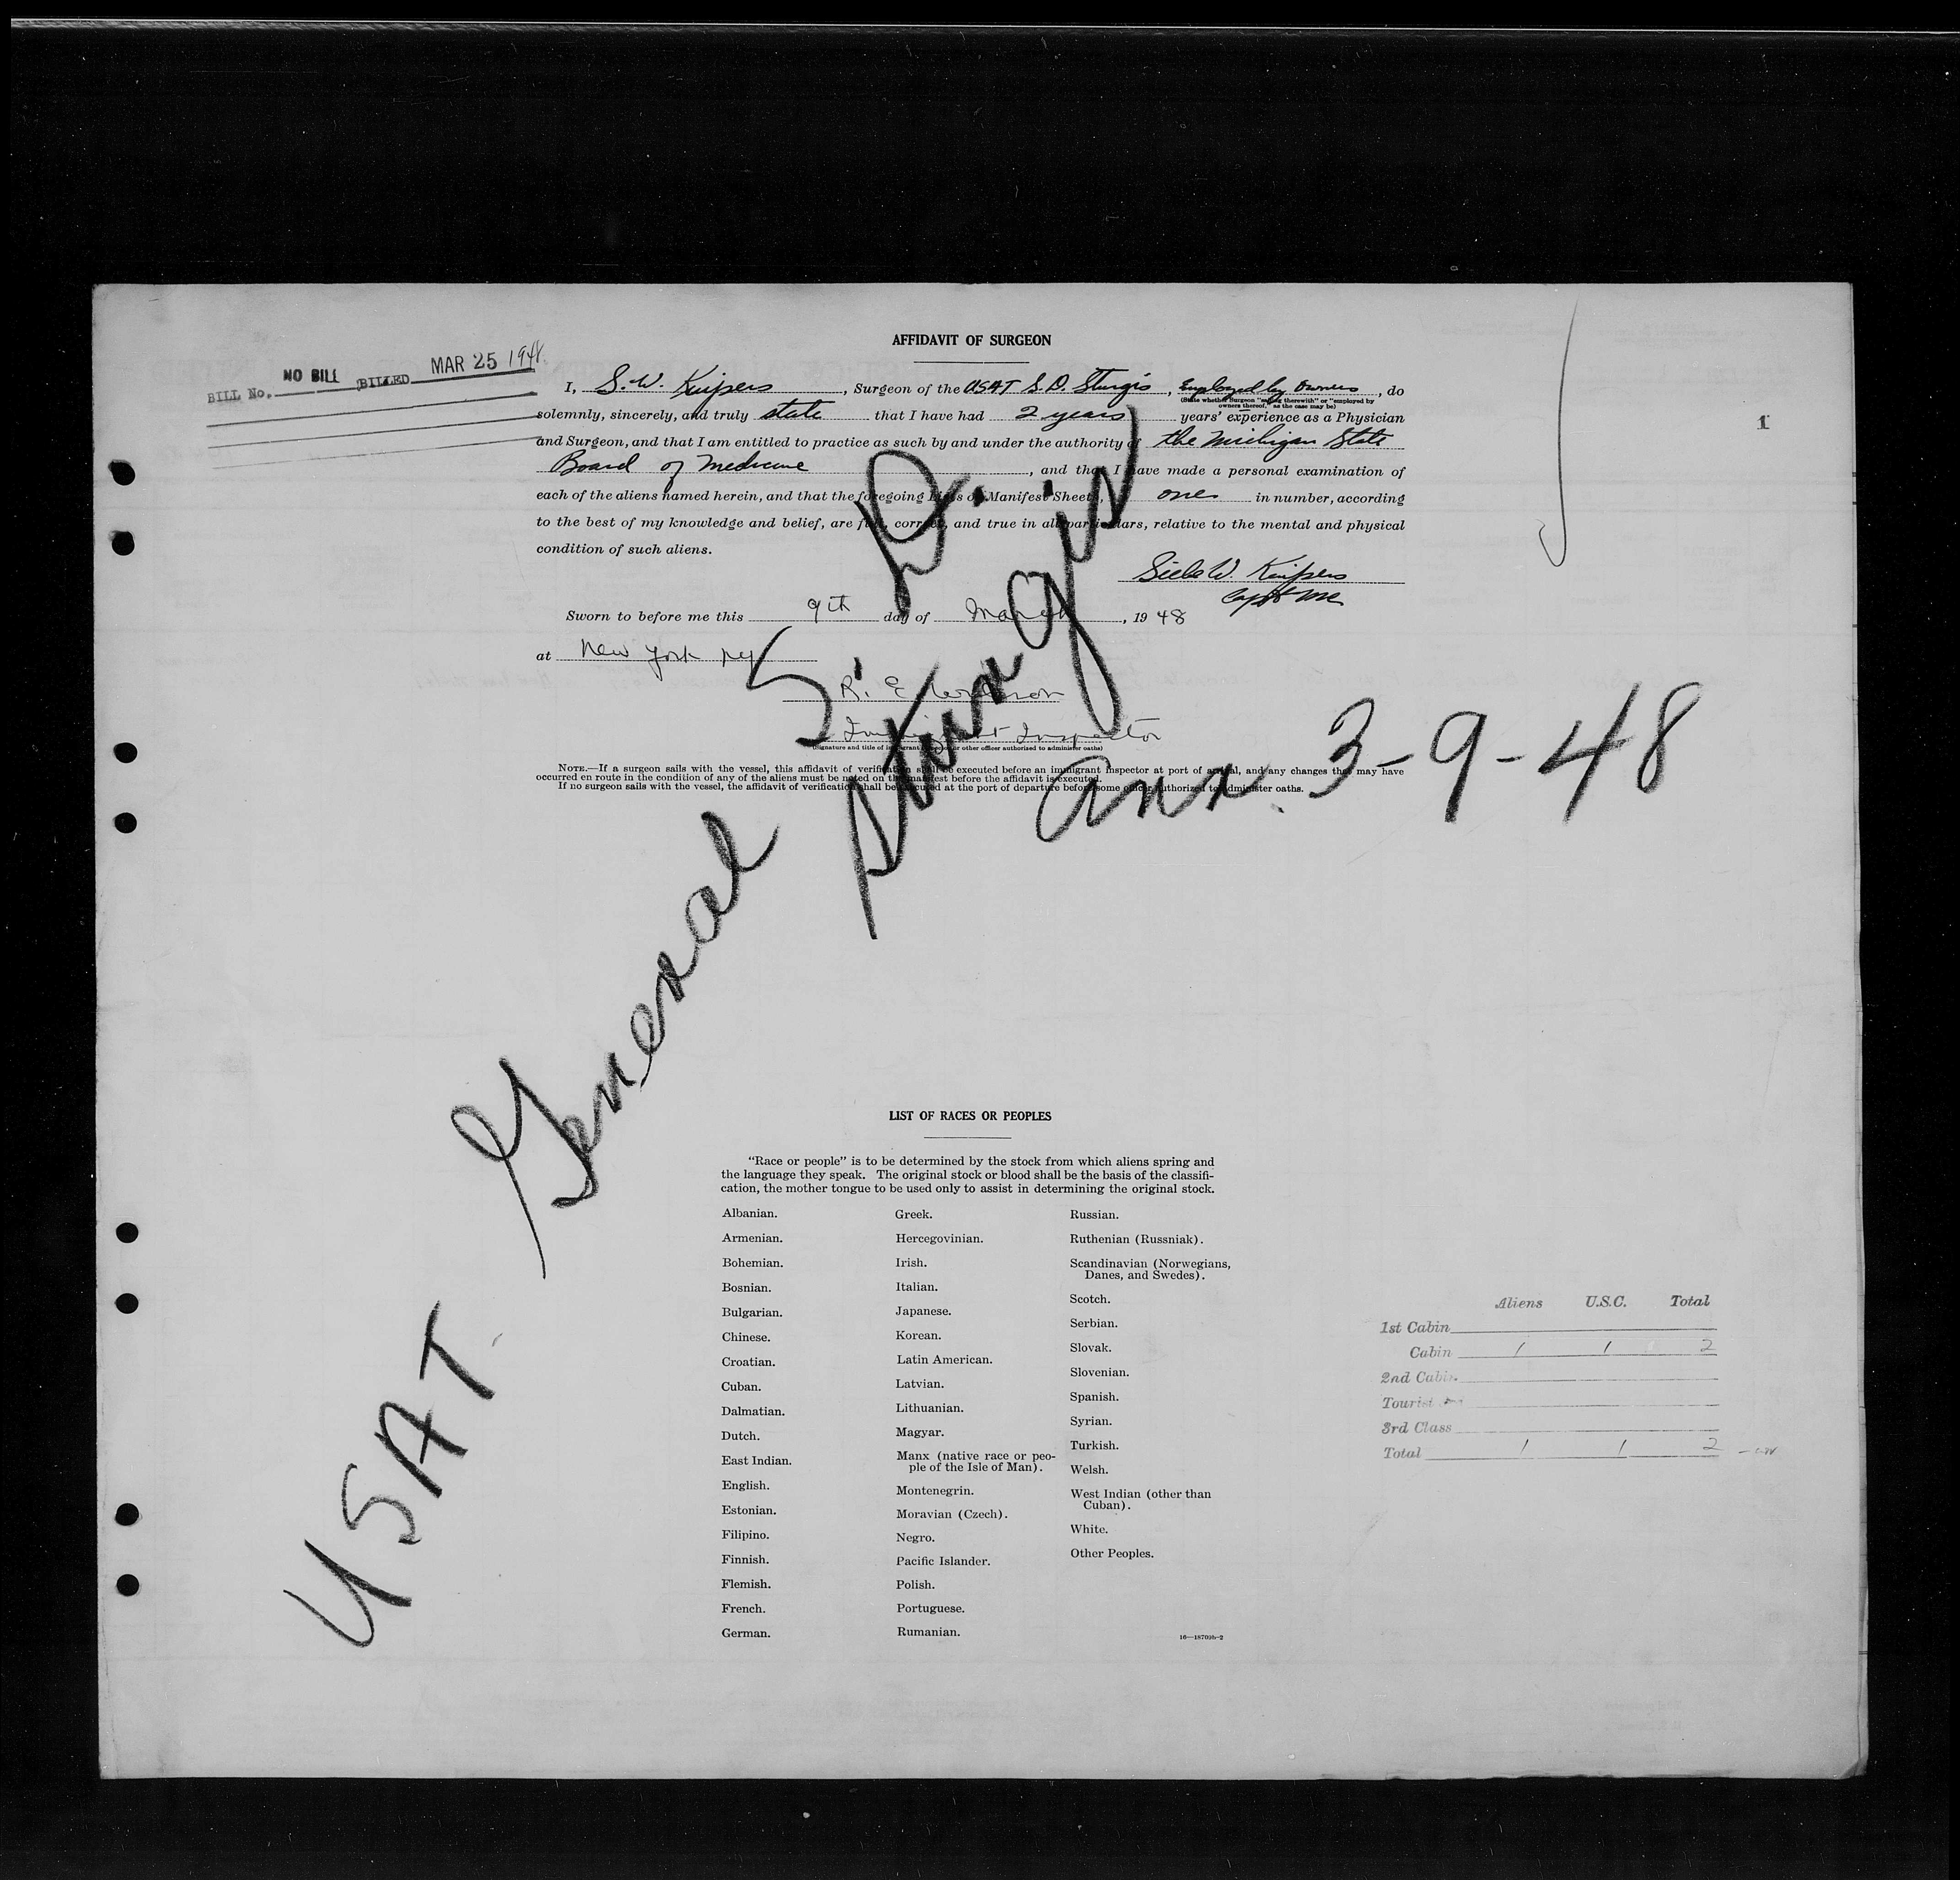 AFFIDAVIT OF SURGEON
BILL No. NO BILL BILLED MAR 25 1948
I, S. W. Kuipers, Surgeon of the USAT S. D. Sturgis, Employed by Owners, do
(State whether Surgeon "sailing therewith" or "employed by
owners thereof," as the case may be)
solemnly, sincerely, and truly state that I have had 2 years years' experience as a Physician
and Surgeon, and that I am entitled to practice as such by and under the authority of the Michigan State
Board of Medicine, and that I have made a personal examination of
each of the aliens named herein, and that the foregoing Lists or Manifest Sheets, one in number, according
to the best of my knowledge and belief, are full, correct, and true in all particulars, relative to the mental and physical
condition of such aliens.
W. Kuipers
Capt
Sworn to before me this 9th day of March, 1948
at New York NY
R. E.
Immigrant Inspector
(Signature and title of immigrant inspector or other officer authorized to administer oaths)
NOTE.—If a surgeon sails with the vessel, this affidavit of verification shall be executed before an immigrant inspector at port of arrival, and any changes that may have
occurred en route in the condition of any of the aliens must be noted on the manifest before the affidavit is executed.
If no surgeon sails with the vessel, the affidavit of verification shall be executed at the port of departure before some officer authorized to administer oaths.
1
USAT. General S. D. Sturgis
Arr. 3-9-48
LIST OF RACES OR PEOPLES
"Race or people" is to be determined by the stock from which aliens spring and
the language they speak. The original stock or blood shall be the basis of the classifi-
cation, the mother tongue to be used only to assist in determining the original stock.
Albanian.
Armenian.
Bohemian.
Bosnian.
Bulgarian.
Chinese.
Croatian.
Cuban.
Dalmatian.
Dutch.
East Indian.
English.
Estonian.
Filipino.
Finnish.
Flemish.
French.
German.
Greek.
Hercegovinian.
Irish.
Italian.
Japanese.
Korean.
Latin American.
Latvian.
Lithuanian.
Magyar.
Manx (native race or peo-
ple of the Isle of Man).
Montenegrin.
Moravian (Czech).
Negro.
Pacific Islander.
Polish.
Portuguese.
Rumanian.
Russian.
Ruthenian (Russniak).
Scandinavian (Norwegians,
Danes, and Swedes).
Scotch.
Serbian.
Slovak.
Slovenian.
Spanish.
Syrian.
Turkish.
Welsh.
West Indian (other than
Cuban).
White.
Other Peoples.
Aliens U.S.C. Total
1st Cabin
Cabin 1 1 2
2nd Cabin
Tourist
3rd Class
Total 1 1 2